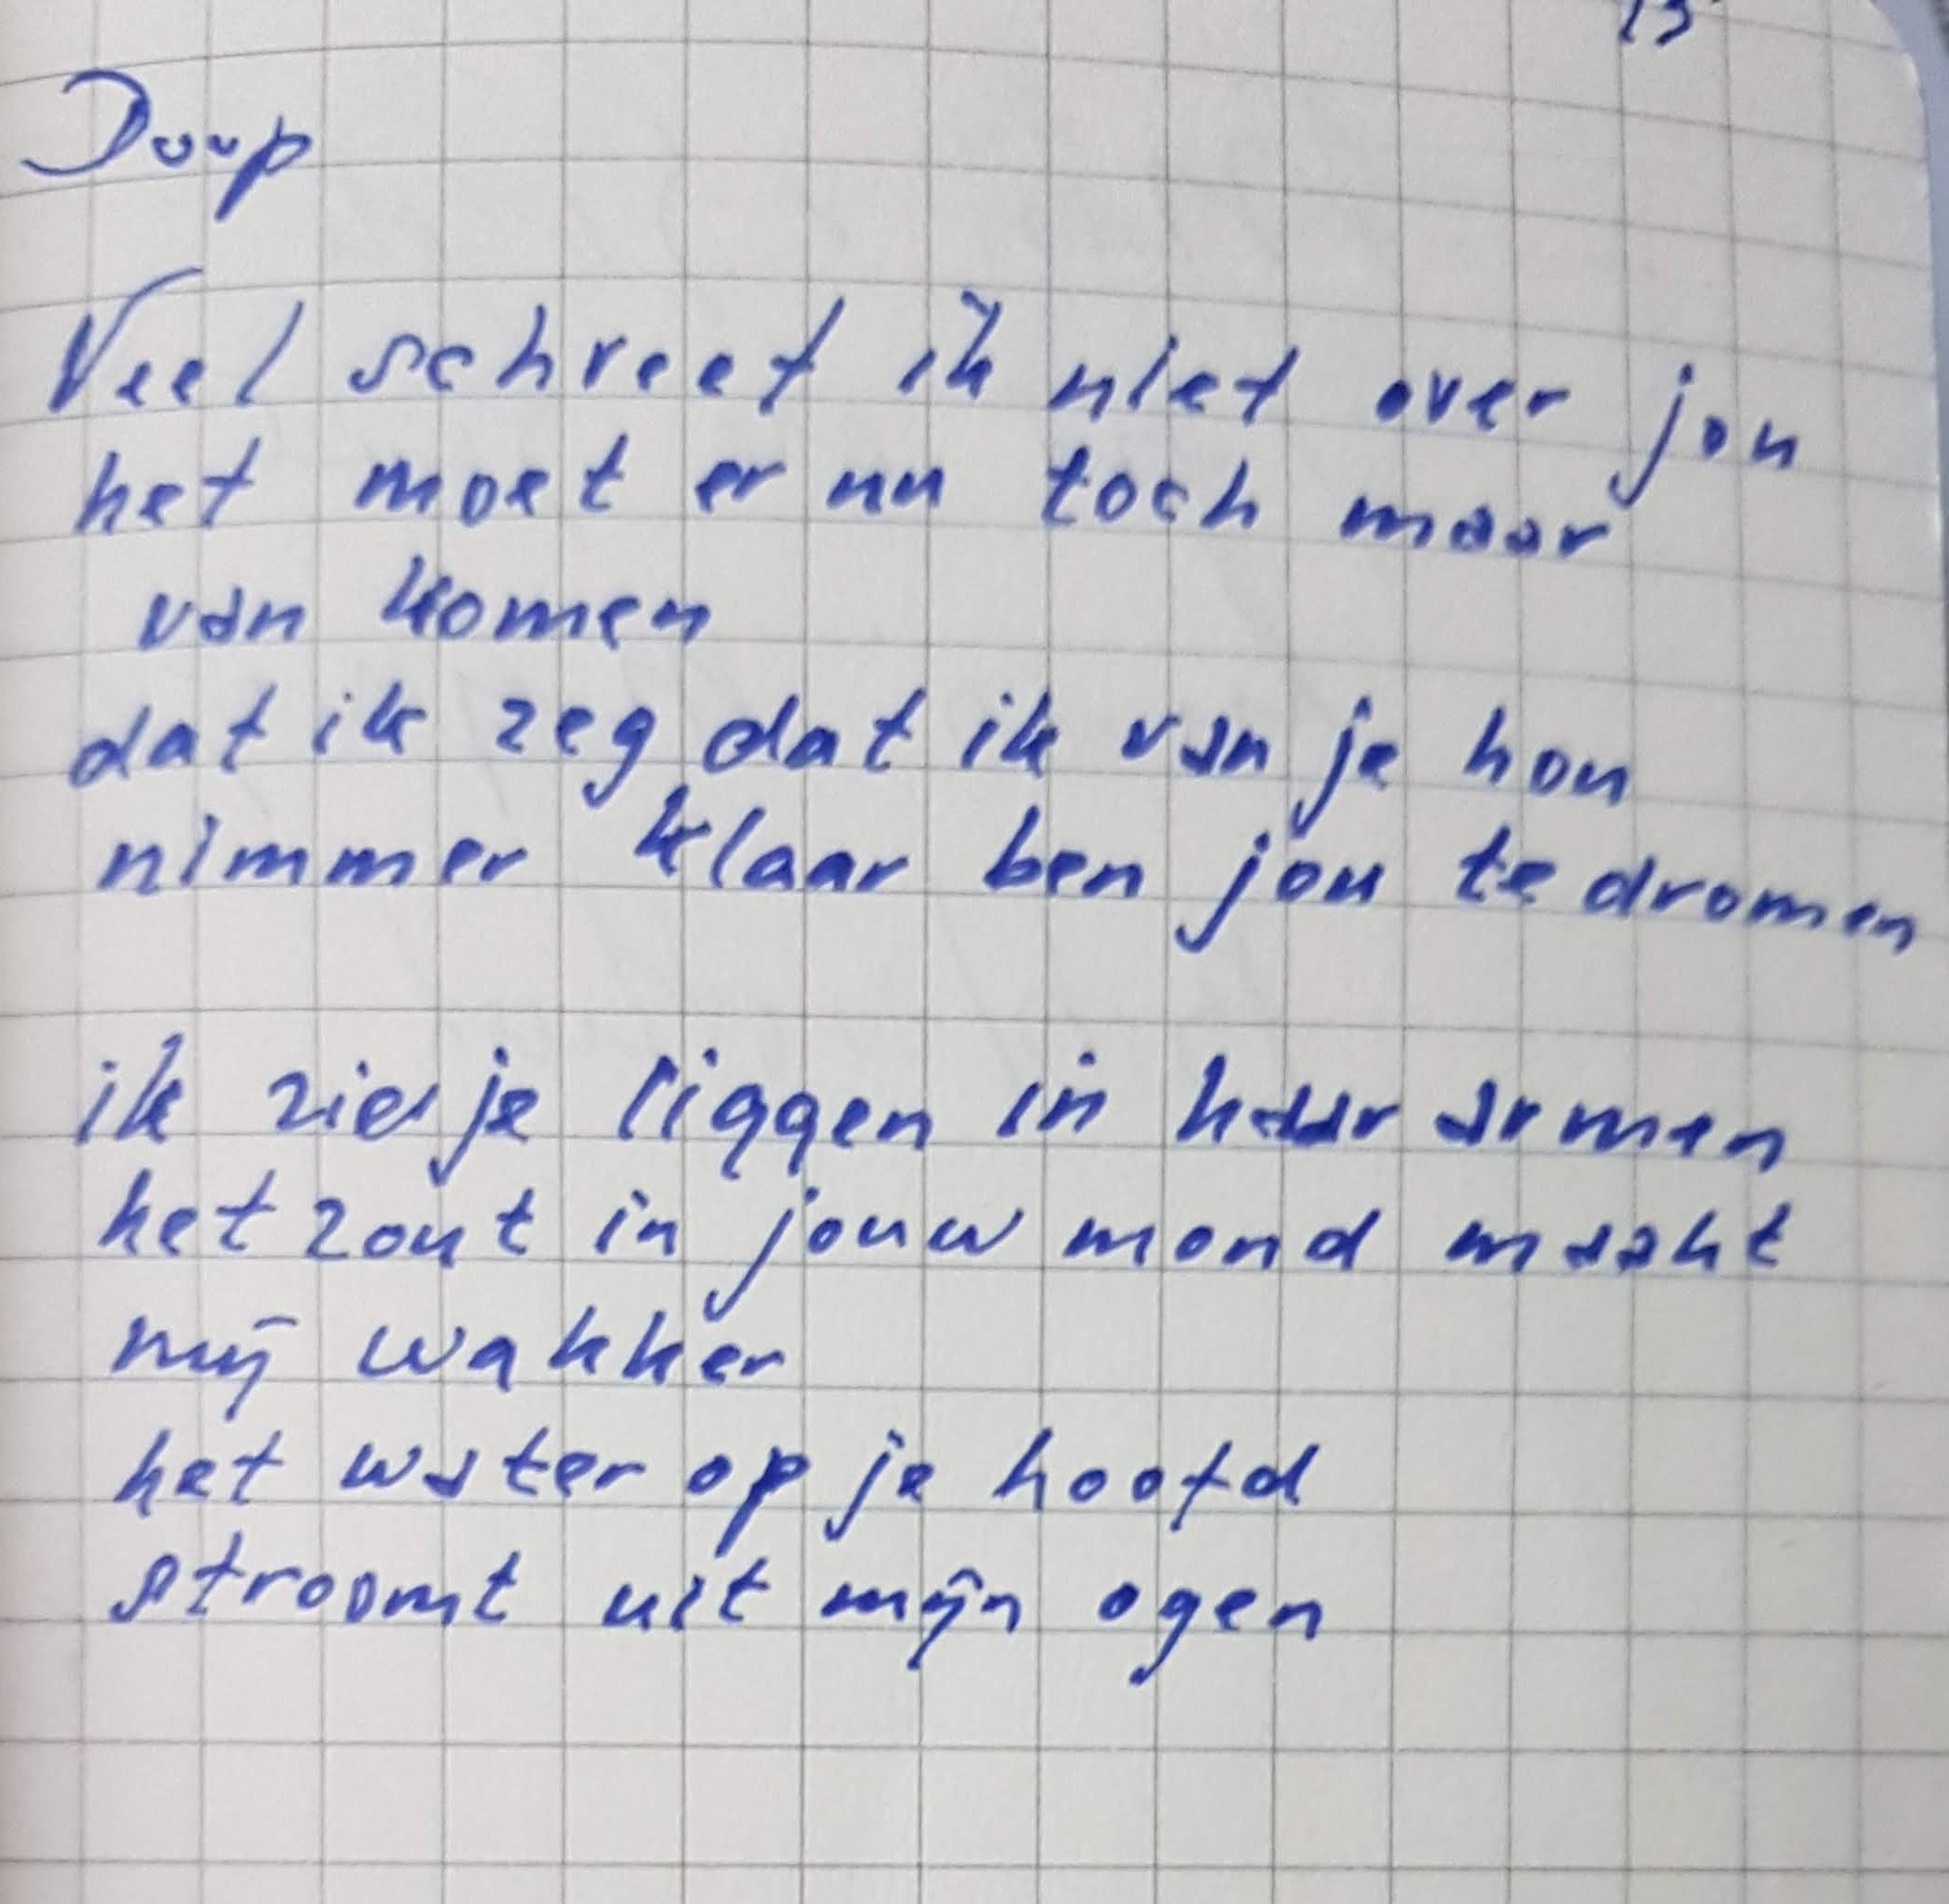 13
Doop
Veel schreef ik niet over jou
het moet er nu toch maar
van komen
dat ik zeg dat ik van je hou
nimmer klaar ben jou te dromen
ik zie je liggen in haar armen
het zout in jouw mond maakt
mij wakker
het water op je hoofd
stroomt uit mijn ogen